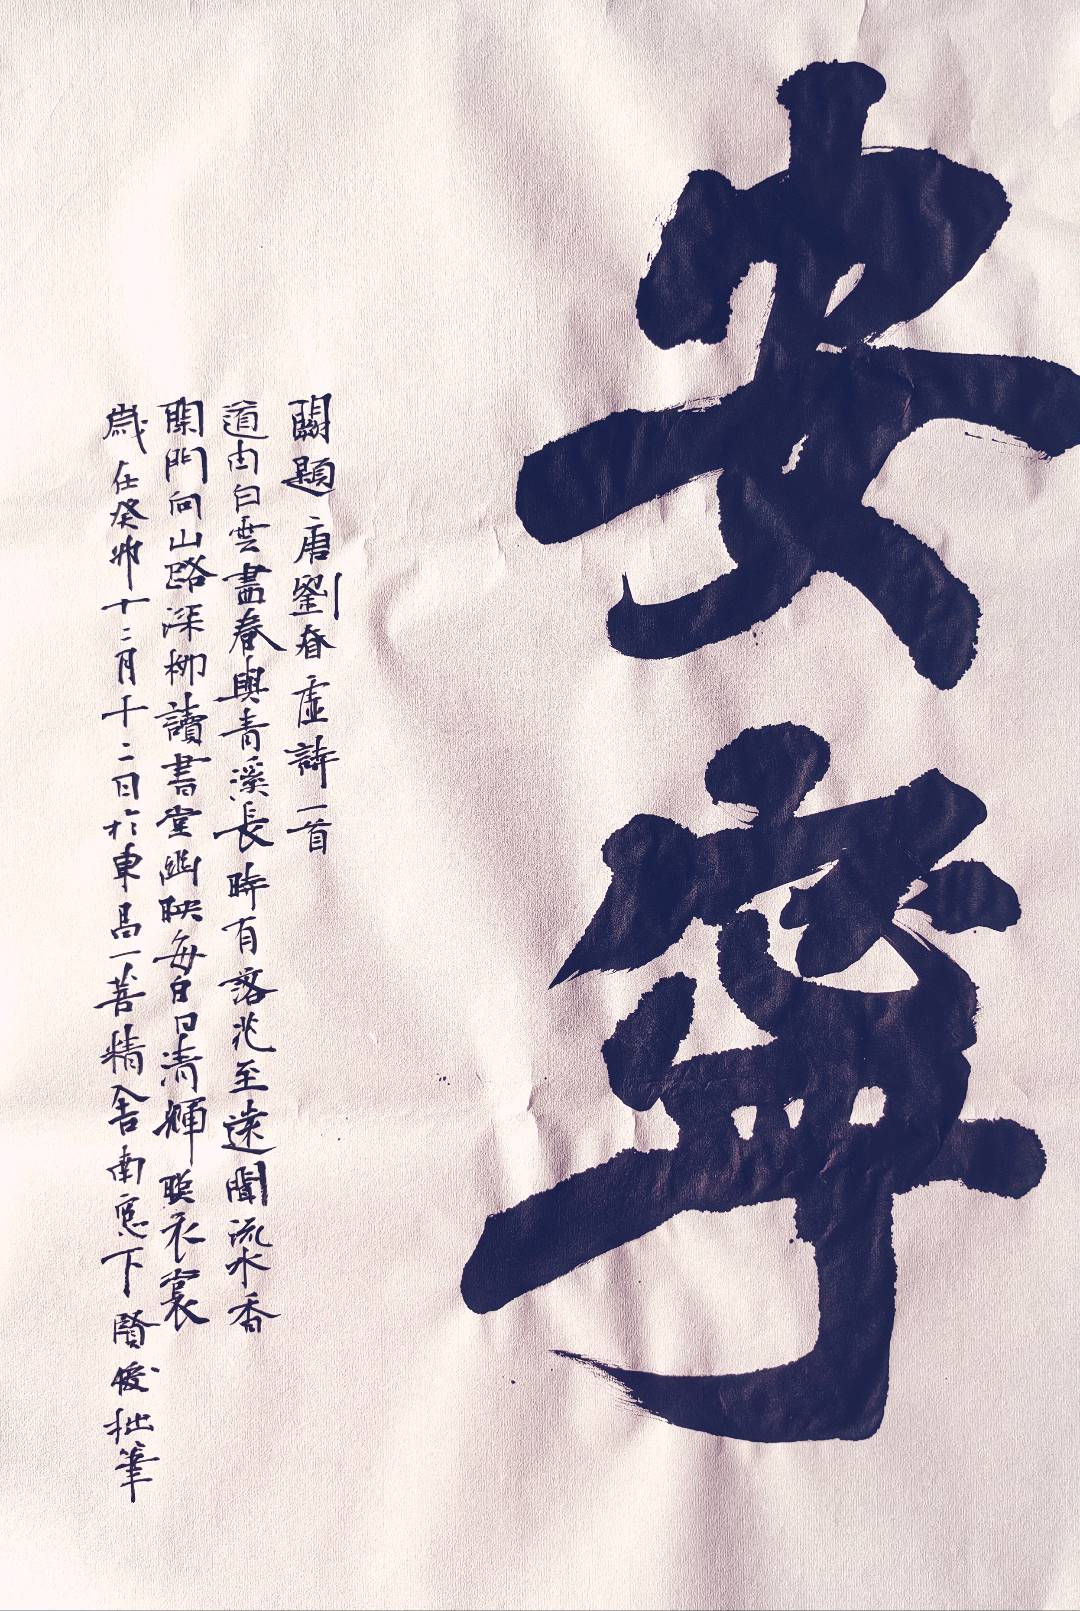 安寧
闕題 唐劉眘虛詩一首
道由白雲盡春與青溪長時有落花至遠聞流水香
閑門向山路深柳讀書堂幽映每白日清輝照衣裳
歲在癸卯十二月十二日於東昌一善精舍南窓下賢俊拙筆